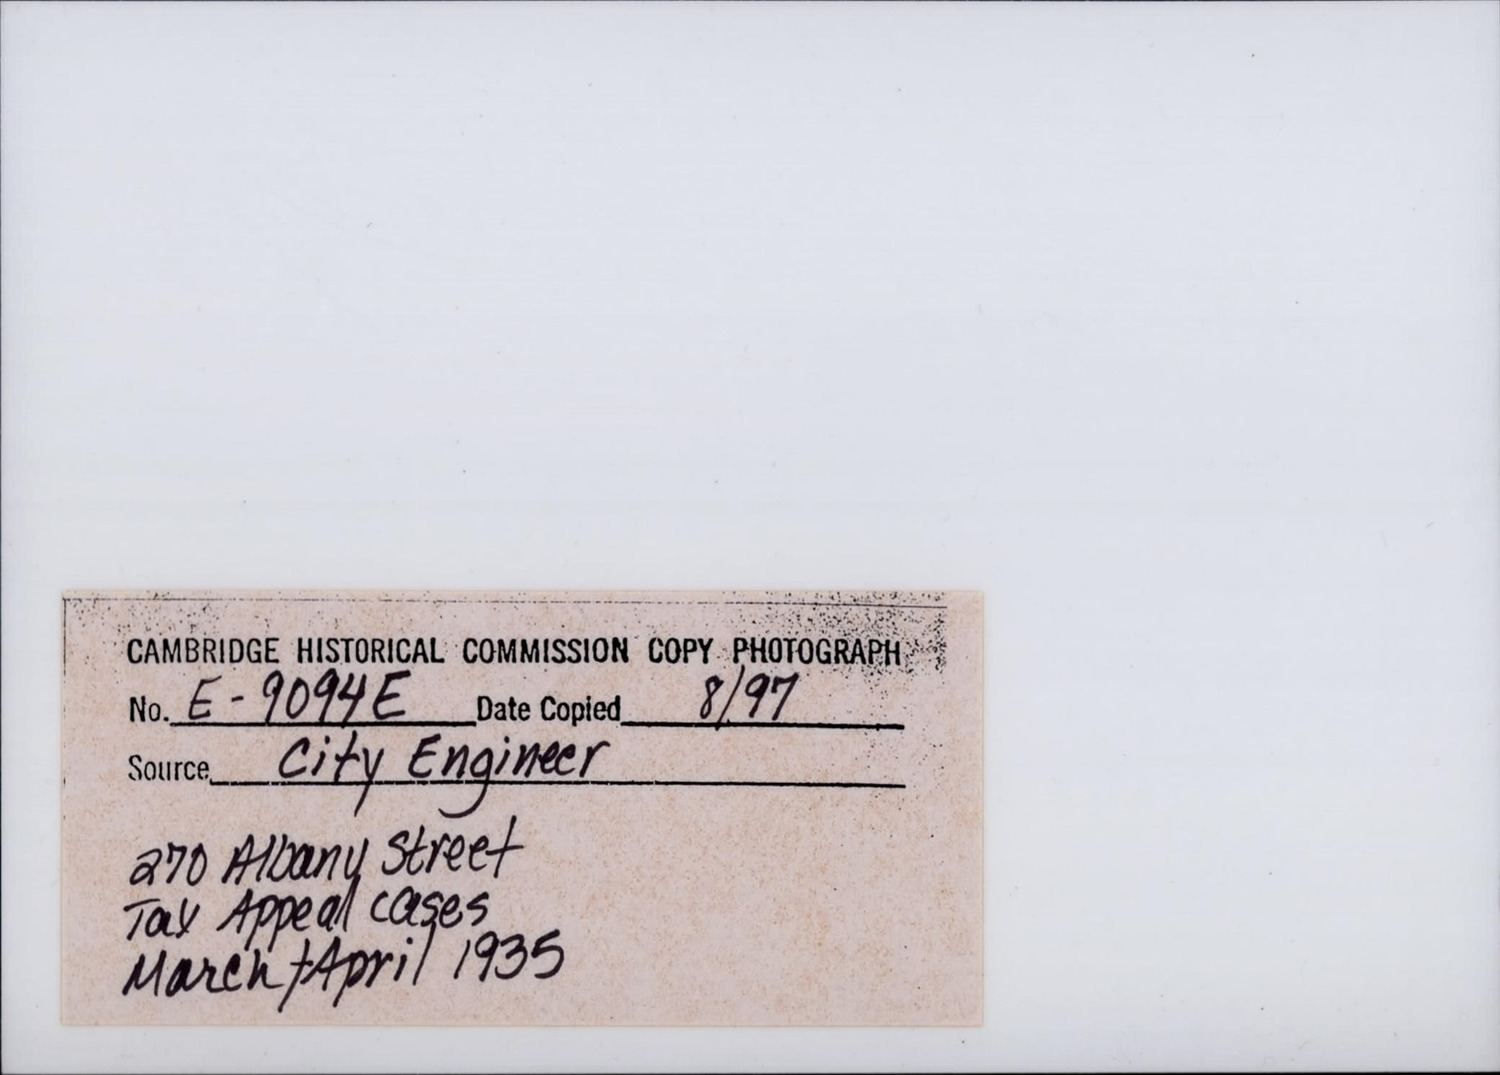 CAMBRIDGE HISTORICAL COMMISSION COPY PHOTOGRAPH
No. E-9094E Date Copied 8/97
Source City Engineer
270 Albany Street
Tax Appeal cases
March + April 1935